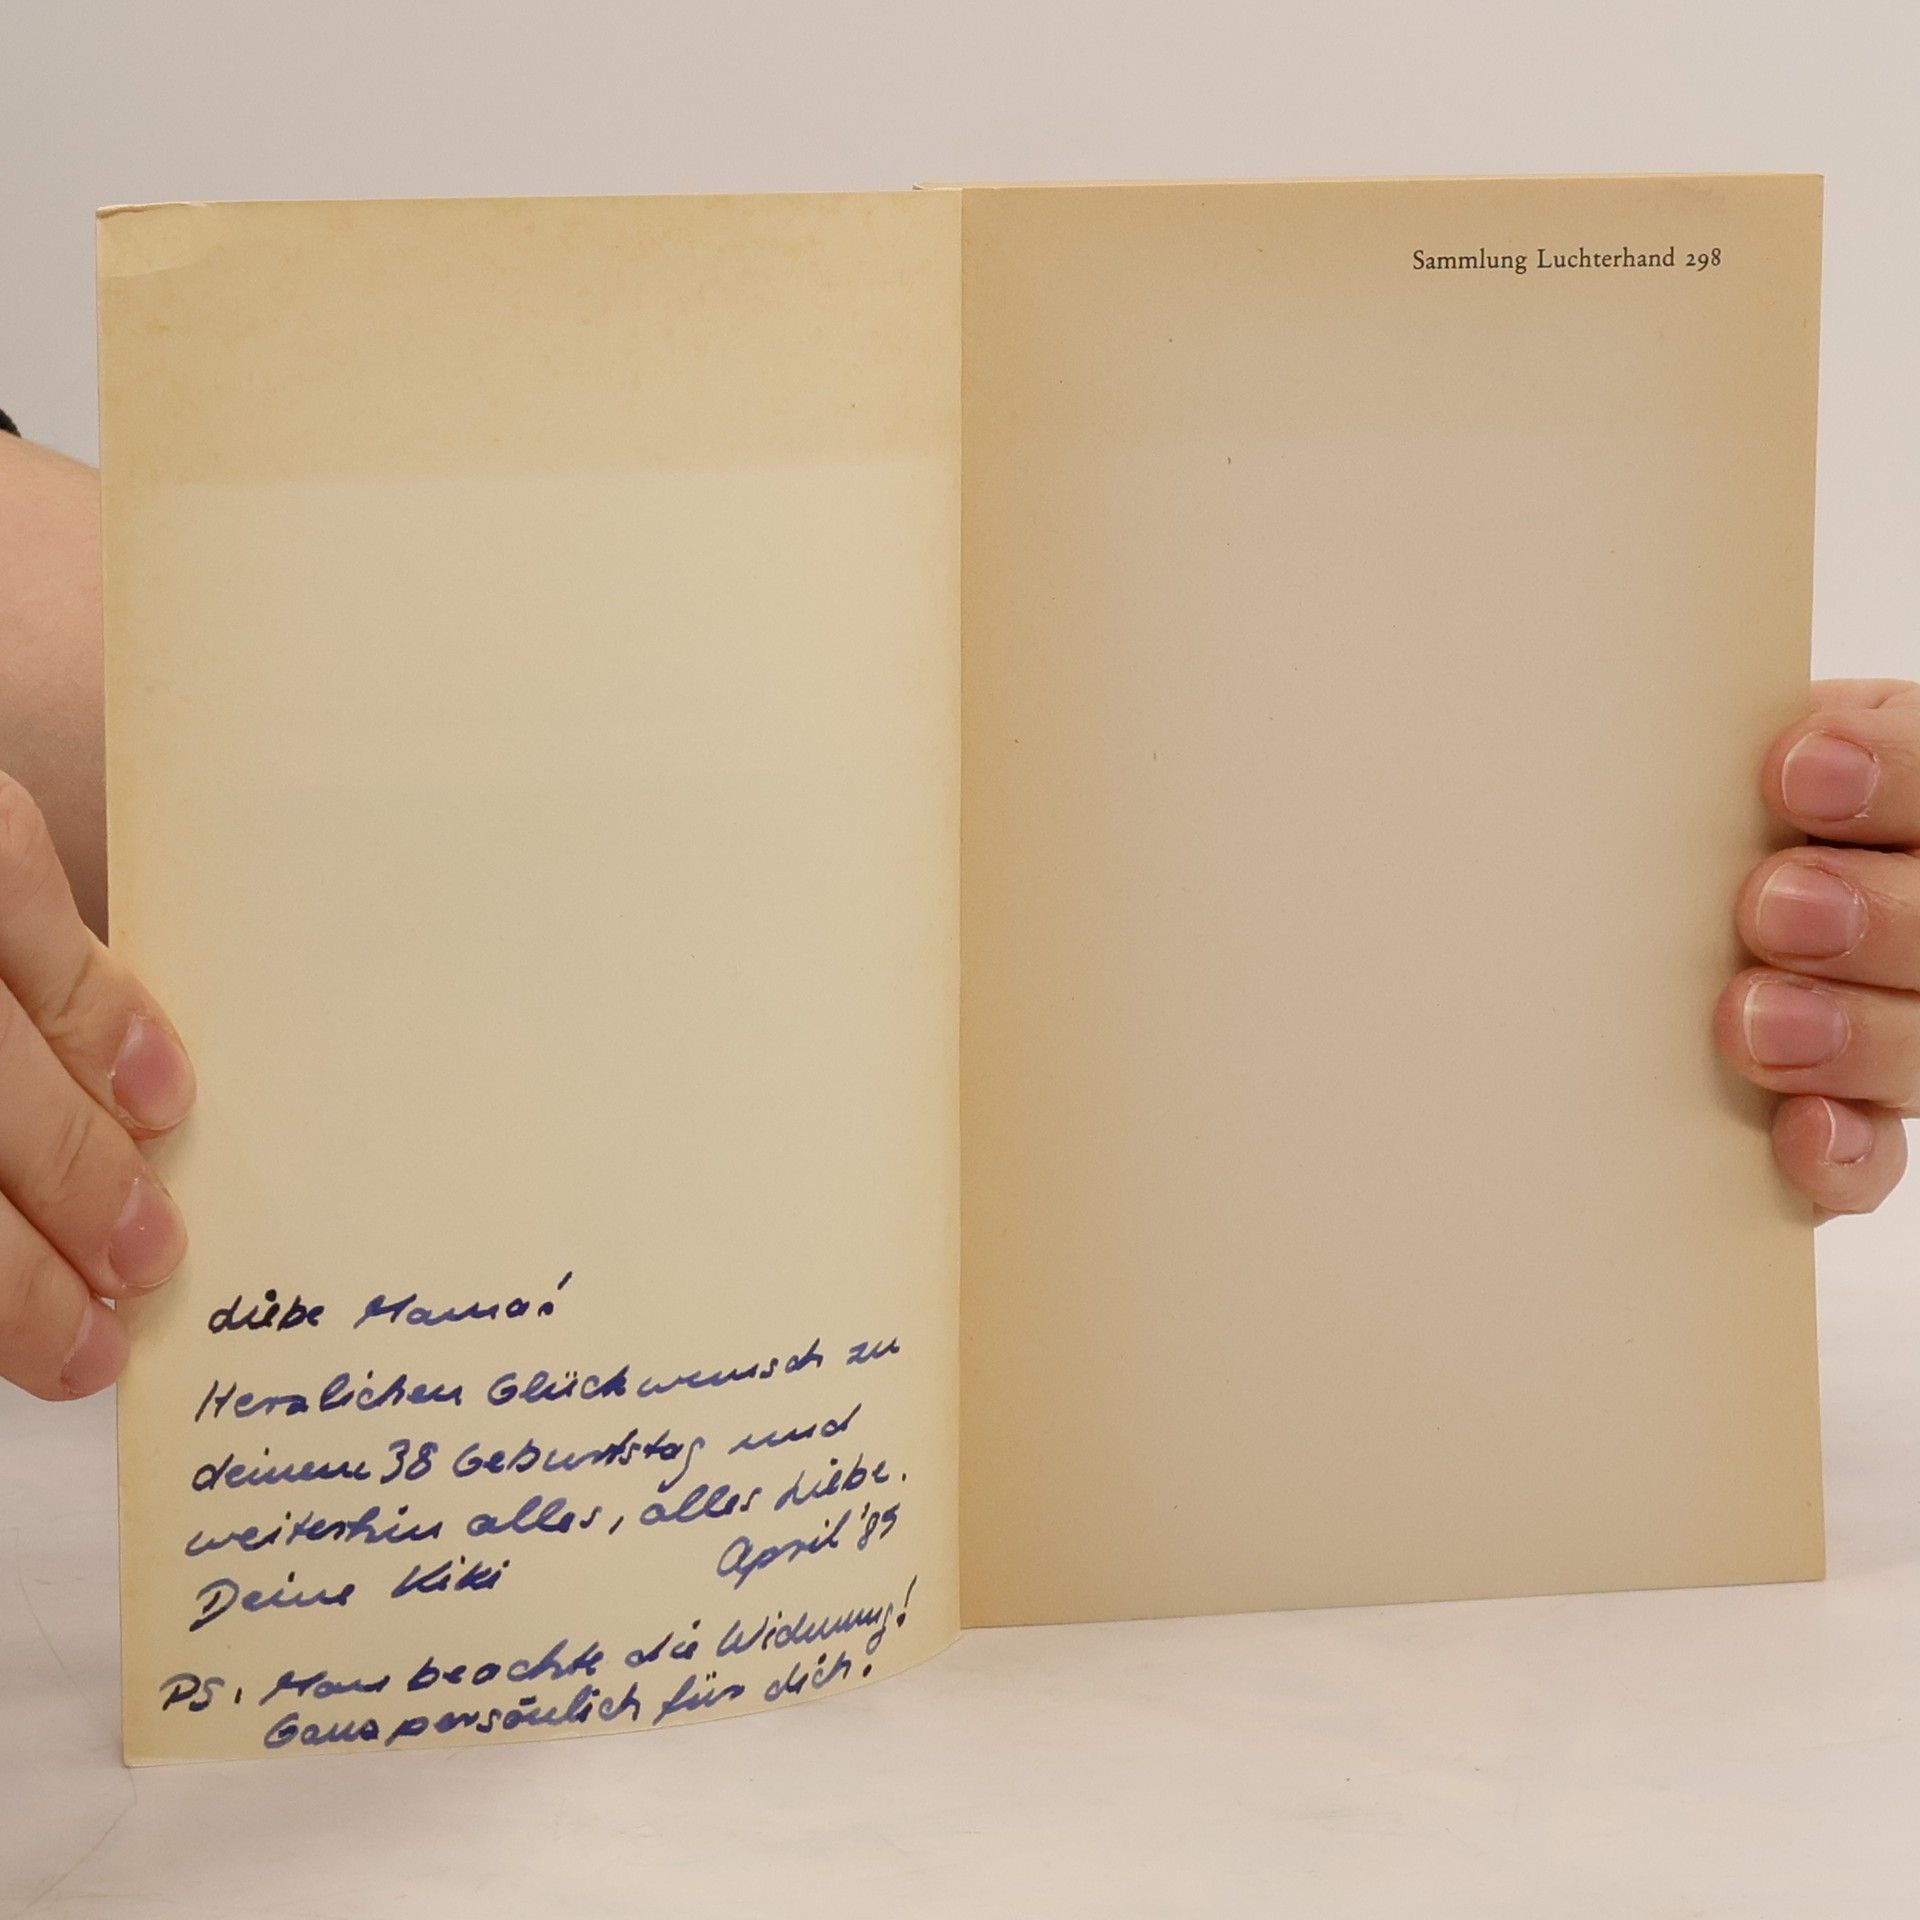 Liebe Mama!
Herzlichen Glückwunsch zu
deinem 38 Geburtstag und
weiterhin alles, alles Liebe.
Deine Kiki April '89
PS. Man beachte die Widmung!
Ganz persönlich für dich.
Sammlung Luchterhand 298